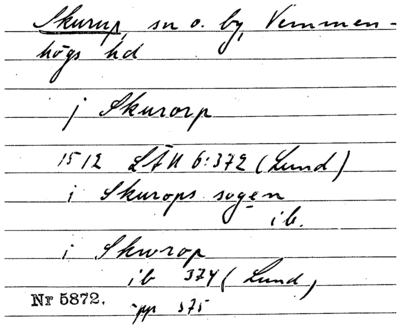 Skurup, sn o. by, Vemmen-
högs hd
j Skurorp
1512 LÄU 6:372 (Lund)
i Skurops sogen
ib.
i Skwrop
ib 374 (Lund)
Nr 5872. pp 375